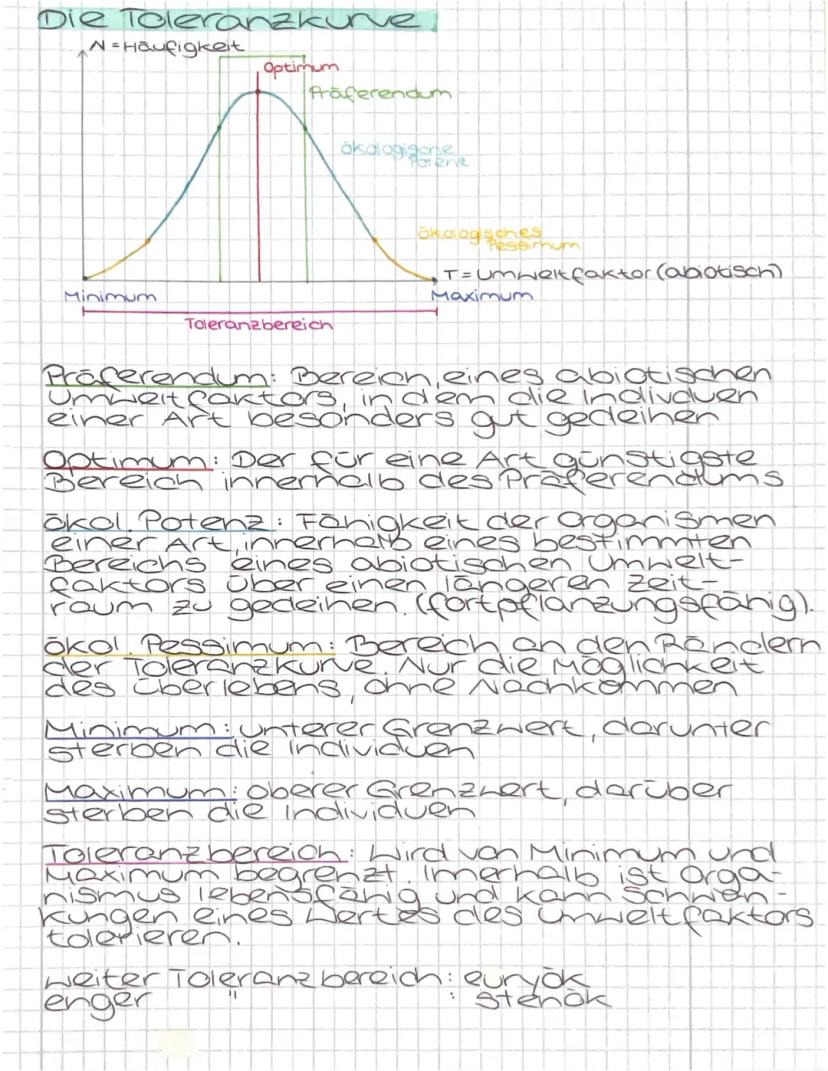 Die Toleranzkurve
N = Häufigkeit
Optimum
Präferendum
ökologische
Potenz
ökologisches
Pessimum
T = Umweltfaktor (abiotisch)
Minimum
Maximum
Toleranzbereich
Präferendum: Bereich, eines abiotischen
Umweltfaktors, in dem die Individuen
einer Art besonders gut gedeihen
Optimum: Der für eine Art günstigste
Bereich innerhalb des Präferendums
ökol. Potenz: Fähigkeit der Organismen
einer Art, innerhalb eines bestimmten
Bereichs eines abiotischen Umwelt-
faktors über einen längeren Zeit-
raum zu gedeihen. (fortpflanzungsfähig).
ökol. Pessimum: Bereich an den Rändern
der Toleranzkurve. Nur die Möglichkeit
des Überlebens, ohne Nachkommen
Minimum: unterer Grenzwert, darunter
sterben die Individuen
Maximum: oberer Grenzwert, darüber
sterben die Individuen
Toleranzbereich: Wird von Minimum und
Maximum begrenzt. Innerhalb ist Orga-
nismus lebensfähig und kann Schwan-
kungen eines Wertes des Umweltfaktors
tolerieren.
weiter Toleranzbereich: euryök
enger " : stenök